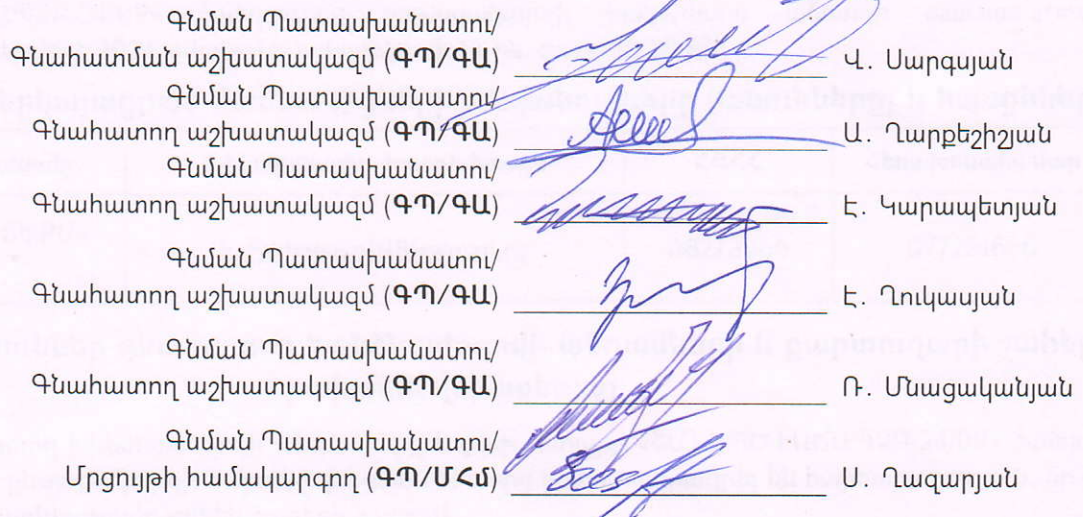 Գնման Պատասխանատու/
Գնահատման աշխատակազմ (ԳՊ/ԳԱ) Վ. Սարգսյան
Գնման Պատասխանատու/
Գնահատող աշխատակազմ (ԳՊ/ԳԱ) Ա. Ղարքեշիշյան
Գնման Պատասխանատու/
Գնահատող աշխատակազմ (ԳՊ/ԳԱ) Է. Կարապետյան
Գնման Պատասխանատու/
Գնահատող աշխատակազմ (ԳՊ/ԳԱ) Է. Ղուկասյան
Գնման Պատասխանատու/
Գնահատող աշխատակազմ (ԳՊ/ԳԱ) Ռ. Մնացականյան
Գնման Պատասխանատու/
Մրցույթի համակարգող (ԳՊ/ՄՀմ) Ս. Ղազարյան